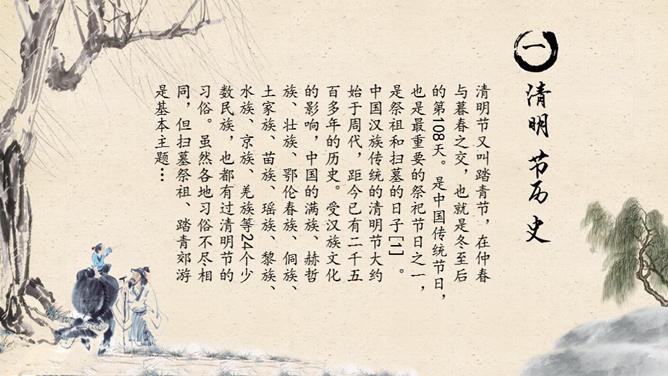 一
清明节历史
清明节又叫踏青节，在仲春
与暮春之交，也就是冬至后
的第108天。是中国传统节日，
也是最重要的祭祀节日之一，
是祭祖和扫墓的日子[1]。
中国汉族传统的清明节大约
始于周代，距今已有二千五
百多年的历史。受汉族文化
的影响，中国的满族、赫哲
族、壮族、鄂伦春族、侗族、
土家族、苗族、瑶族、黎族、
水族、京族、羌族等24个少
数民族，也都有过清明节的
习俗。虽然各地习俗不尽相
同，但扫墓祭祖、踏青郊游
是基本主题…